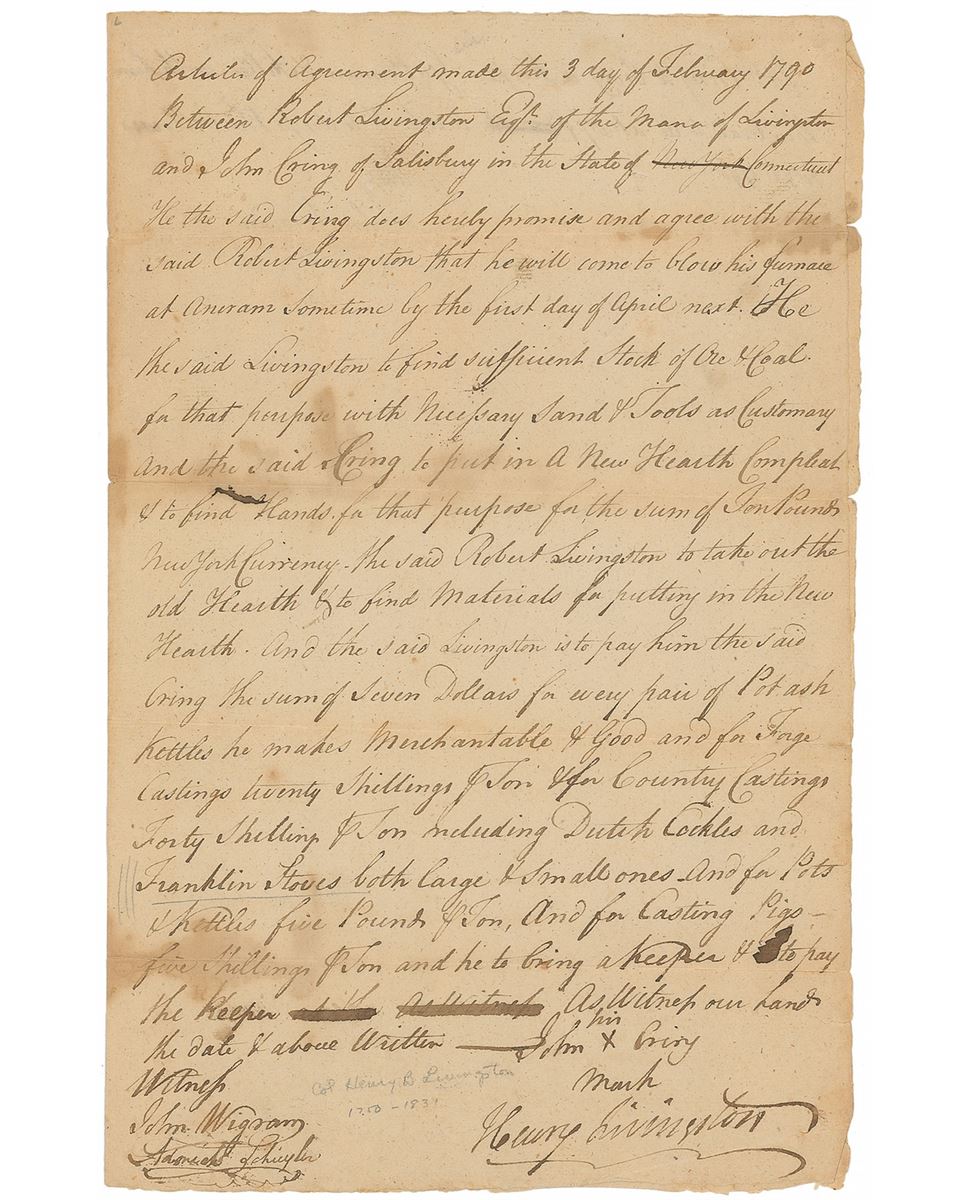 Articles of Agreement made this 3 day of February 1790
Between Robert Livingston Esqr. of the Mana of Livingston
and John Cring of Salisbury in the State of New York Connecticut
He the said Cring does hereby promise and agree with the
said Robert Livingston that he will come to blow his furnace
at Ancram Sometime by the first day of April next. He
the said Livingston to find sufficient Stock of Ore & Coal
for that purpose with Necessary Sand & Tools as Customary
And the said Cring to put in A New Hearth Compleat
& to find Hands for that purpose for the sum of Ten Pounds
New York Currency. the said Robert Livingston to take out the
old Hearth & to find Materials for putting in the New
Hearth. And the said Livingston is to pay him the said
Cring the sum of Seven Dollars for every pair of Pot ash
Kettles he makes Merchantable & Good and for Forge
Castings twenty Shillings ⅌ Ton & for Country Castings
Forty Shillings ⅌ Ton including Dutch Cockles and
Franklin Stoves both large & Small ones. And for Pots
& Kettles five Pounds ⅌ Ton, And for Casting Pigs –
five Shillings ⅌ Ton and he to bring a Keeper & to pay
the Keeper As Witness As Witness our hands
the date & above Written — John his X Cring
Witness Mark
Col Henry B Livingston
1750 - 1831
John Wigram
Schuyler
Henry Livingston